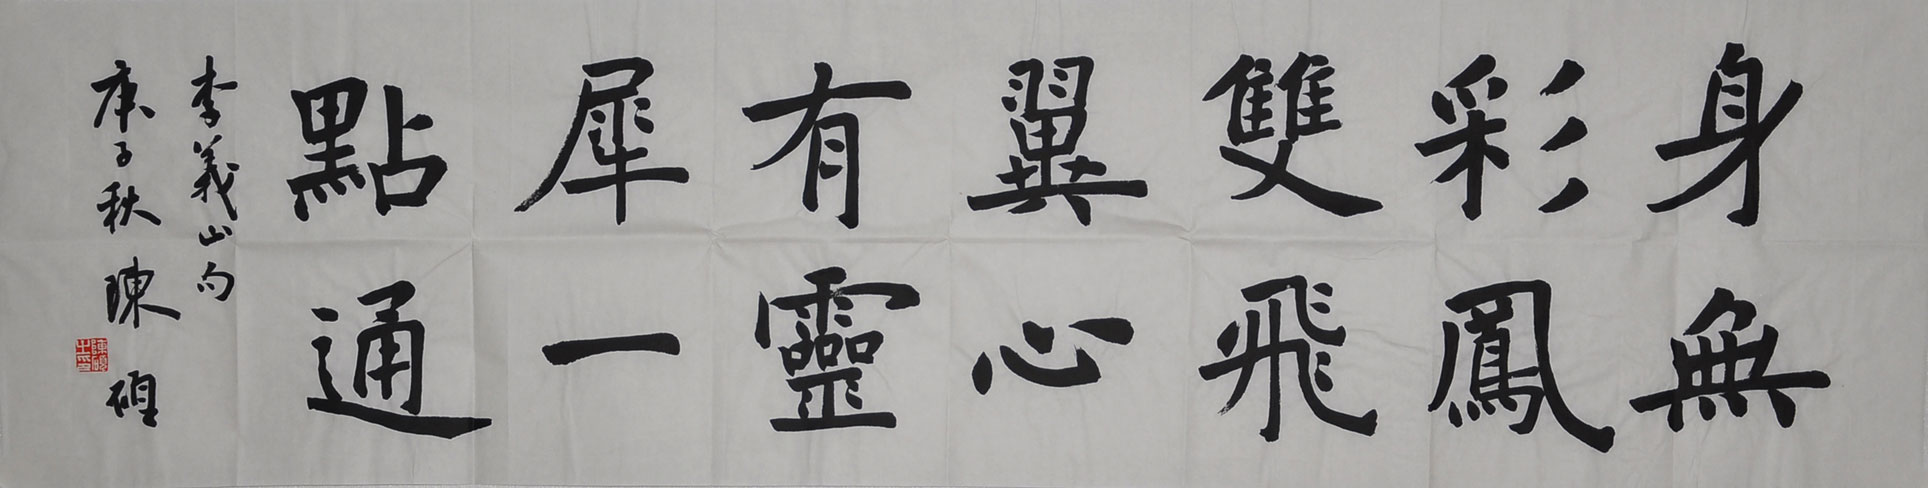 身無
彩鳳
雙飛
翼心
有靈
犀一
點通
李義山句
庚子秋 陳碩
陳碩之印